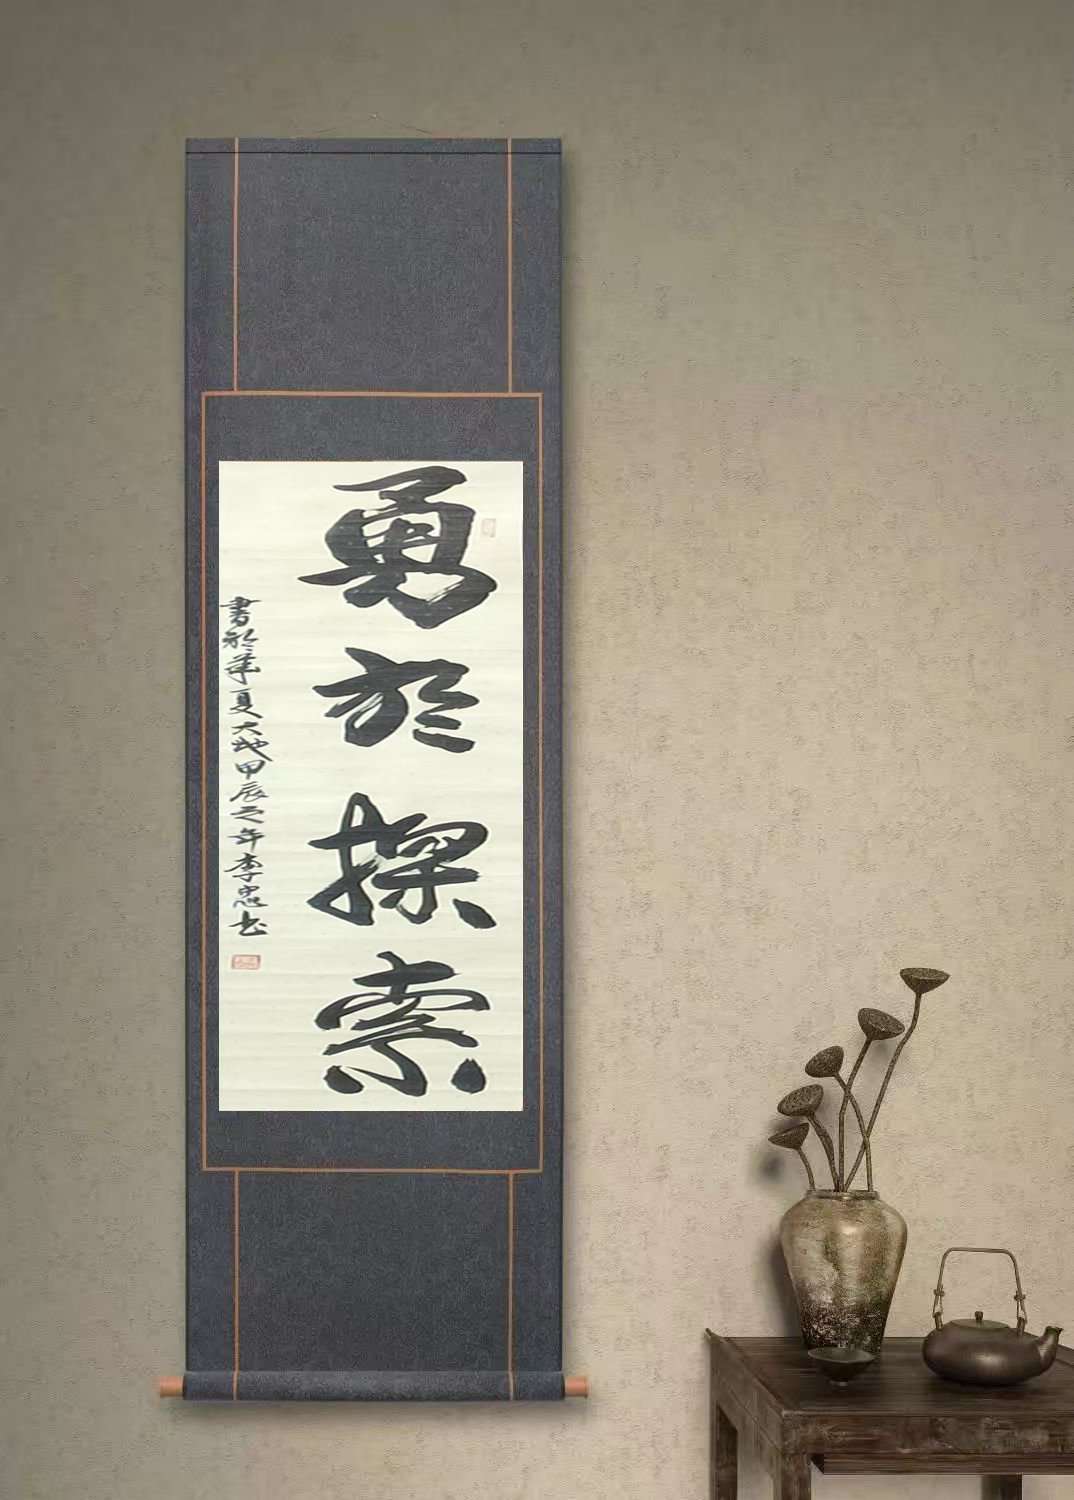 勇於探索
書於華夏大地甲辰之年李忠书